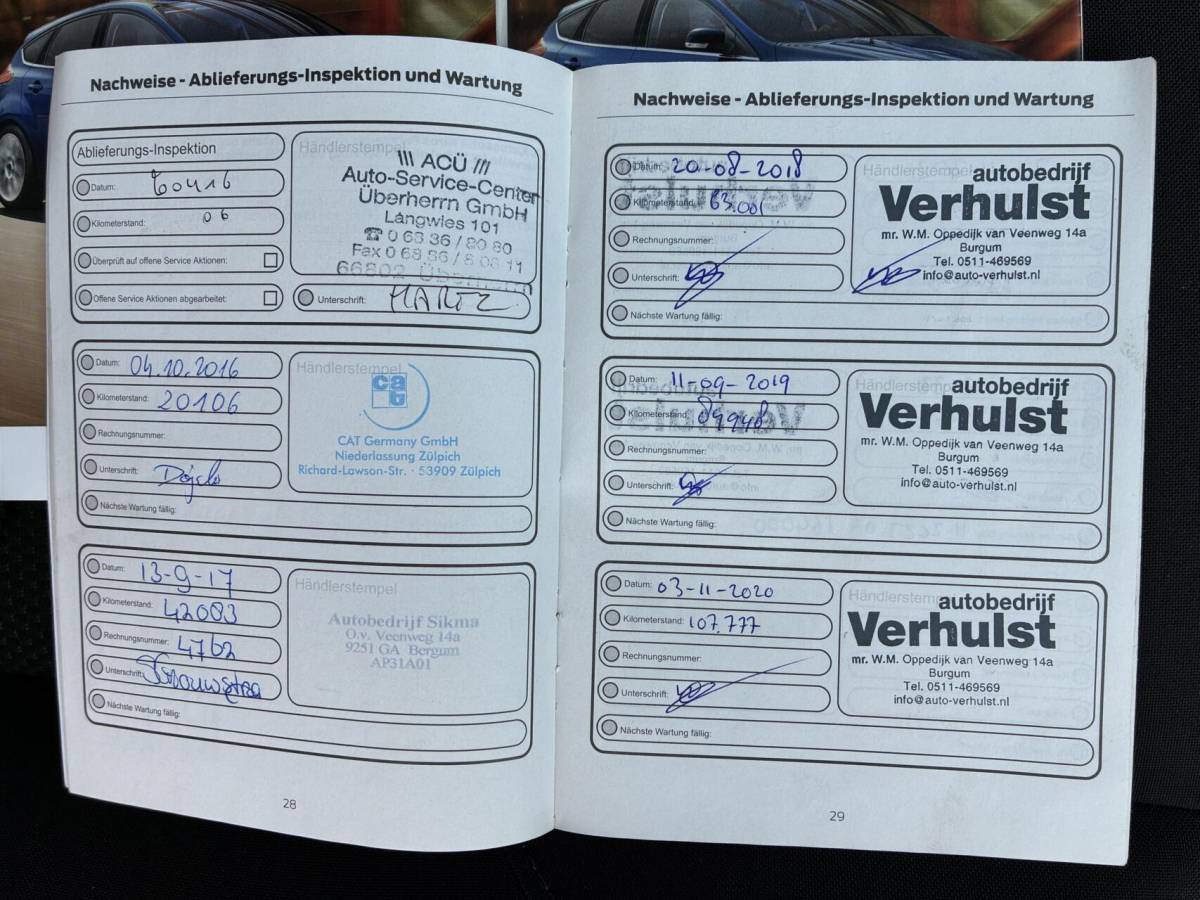 Nachweise - Ablieferungs-Inspektion und Wartung
Ablieferungs-Inspektion
Datum:
Kilometerstand: 06
Überprüft auf offene Service Aktionen:
Offene Service Aktionen abgearbeitet:
Händlerstempel
/// ACÜ ///
Auto-Service-Center
Überherrn GmbH
Langwies 101
☎ 0 68 36 / 80 80
Fax 0 68 36 / 8 08 11
66802 Überherrn
Unterschrift: MARTZ
Datum: 04.10.2016
Kilometerstand: 20106
Rechnungsnummer:
Unterschrift:
Nächste Wartung fällig:
Händlerstempel
cat
CAT Germany GmbH
Niederlassung Zülpich
Richard-Lawson-Str. · 53909 Zülpich
Datum: 13-9-17
Kilometerstand: 42083
Rechnungsnummer: 4762
Unterschrift:
Nächste Wartung fällig:
Händlerstempel
Autobedrijf Sikma
O.v. Veenweg 14a
9251 GA Bergum
AP31A01
28
Nachweise - Ablieferungs-Inspektion und Wartung
Datum: 20-08-2018
Kilometerstand: 63.081
Rechnungsnummer:
Unterschrift:
Nächste Wartung fällig:
Händlerstempel
autobedrijf
Verhulst
mr. W.M. Oppedijk van Veenweg 14a
Burgum
Tel. 0511-469569
info@auto-verhulst.nl
Datum: 11-09-2019
Kilometerstand: 84948
Rechnungsnummer:
Unterschrift:
Nächste Wartung fällig:
Händlerstempel
autobedrijf
Verhulst
mr. W.M. Oppedijk van Veenweg 14a
Burgum
Tel. 0511-469569
info@auto-verhulst.nl
Datum: 03-11-2020
Kilometerstand: 107.777
Rechnungsnummer:
Unterschrift:
Nächste Wartung fällig:
Händlerstempel
autobedrijf
Verhulst
mr. W.M. Oppedijk van Veenweg 14a
Burgum
Tel. 0511-469569
info@auto-verhulst.nl
29